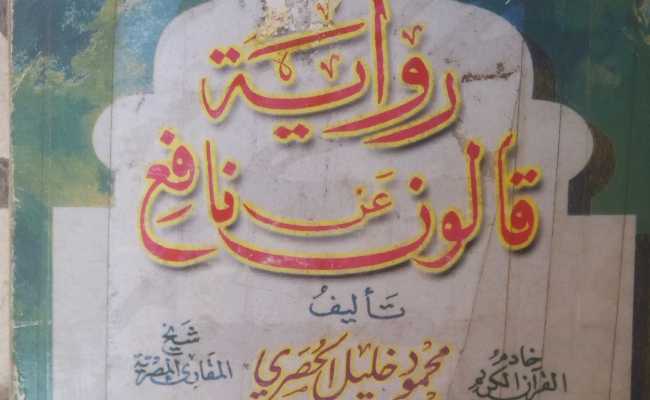 رواية
قالون عن نافع
تأليف
خادم القرآن الكريم محمود خليل الحصري شيخ المقارئ المصرية